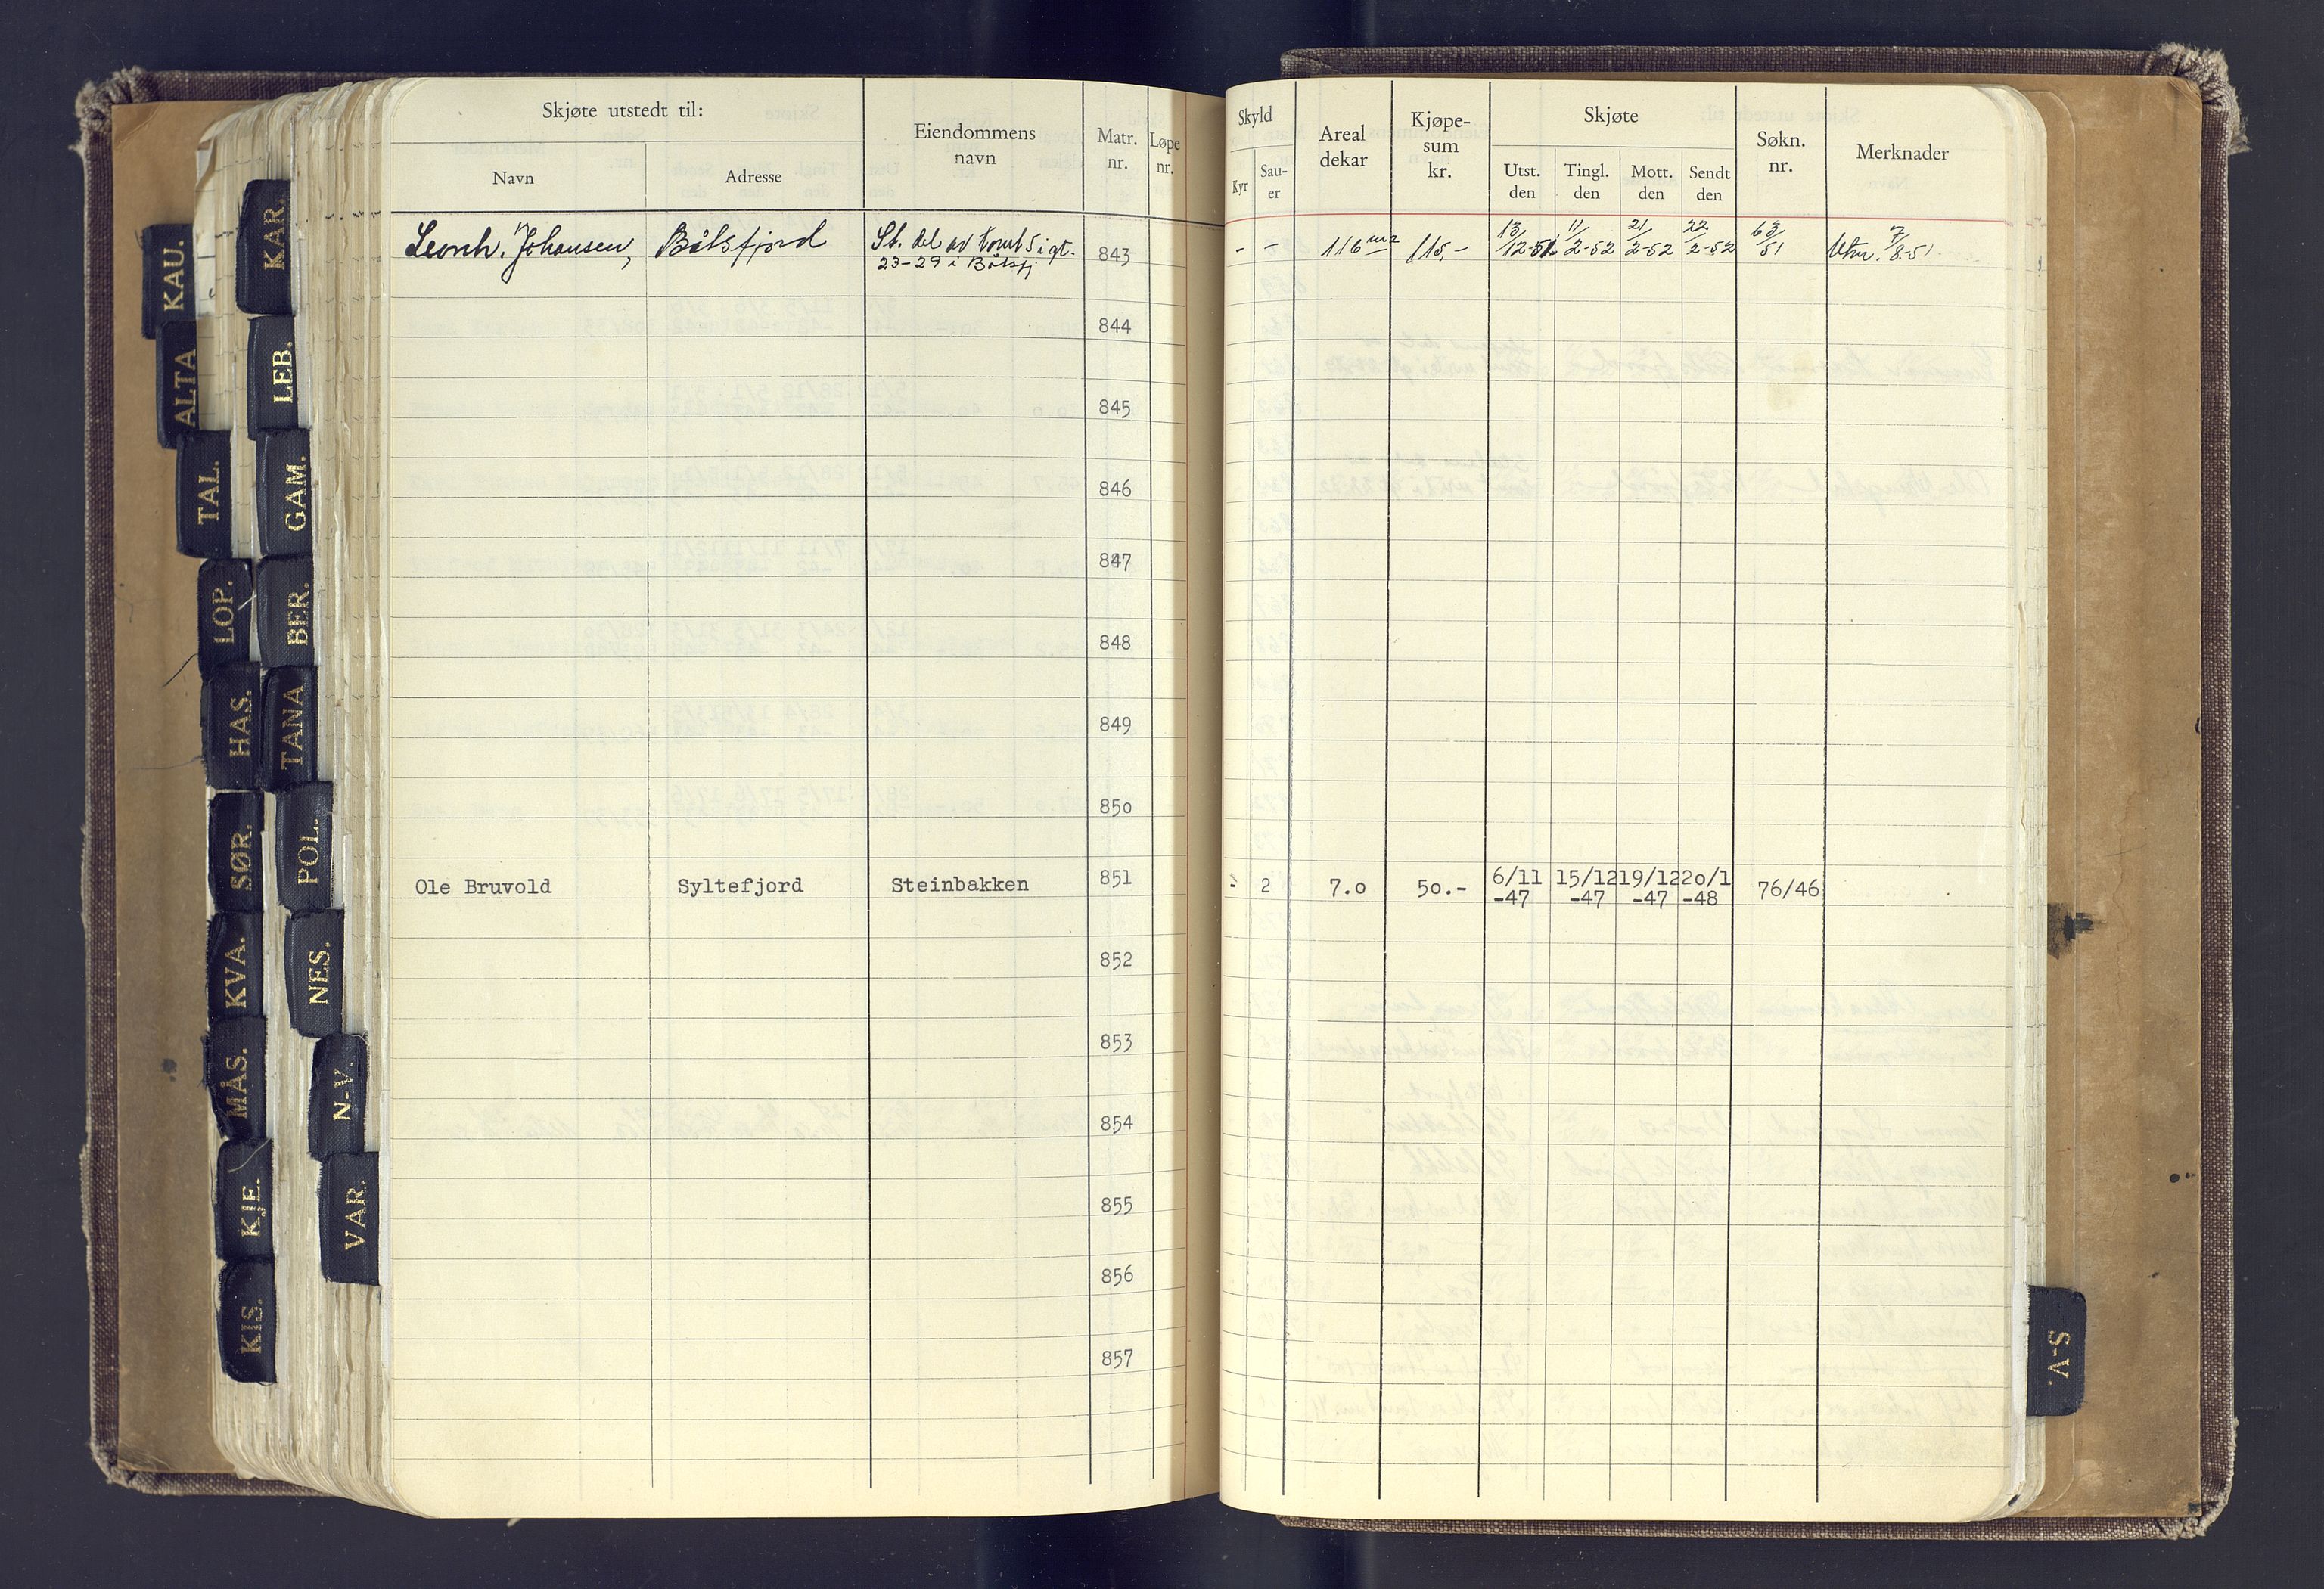 Skjøte utstedt til:
Navn
Adresse
Eiendommens
navn
Matr.
nr.
Løpe
nr.
Skyld
Kyr
Sau-
er
Areal
dekar
Kjøpe-
sum
kr.
Skjøte
Utst.
den
Tingl.
den
Mott.
den
Sendt
den
Søkn.
nr.
Merknader
Leonh. Johansen, Båtsfjord St. del av tomt 5 i qt. 843 - - 116 m2 115,- 13/12-51 11/2-52 21/2-52 22/2-52 63/51 7/8-51
23-29 i Båtsfj
844
845
846
847
848
849
850
Ole Bruvold Syltefjord Steinbakken 851 - 2 7.0 50.- 6/11 15/12 19/12 20/1 76/46
-47 -47 -47 -48
852
853
854
855
856
857
KAU.
ALTA
TAL.
LOP.
HAS.
SØR.
KVA.
MÅS.
KJE.
KIS.
KAR.
LEB.
GAM.
BER.
TANA
POL.
NES.
N-V.
VAR.
S-V.